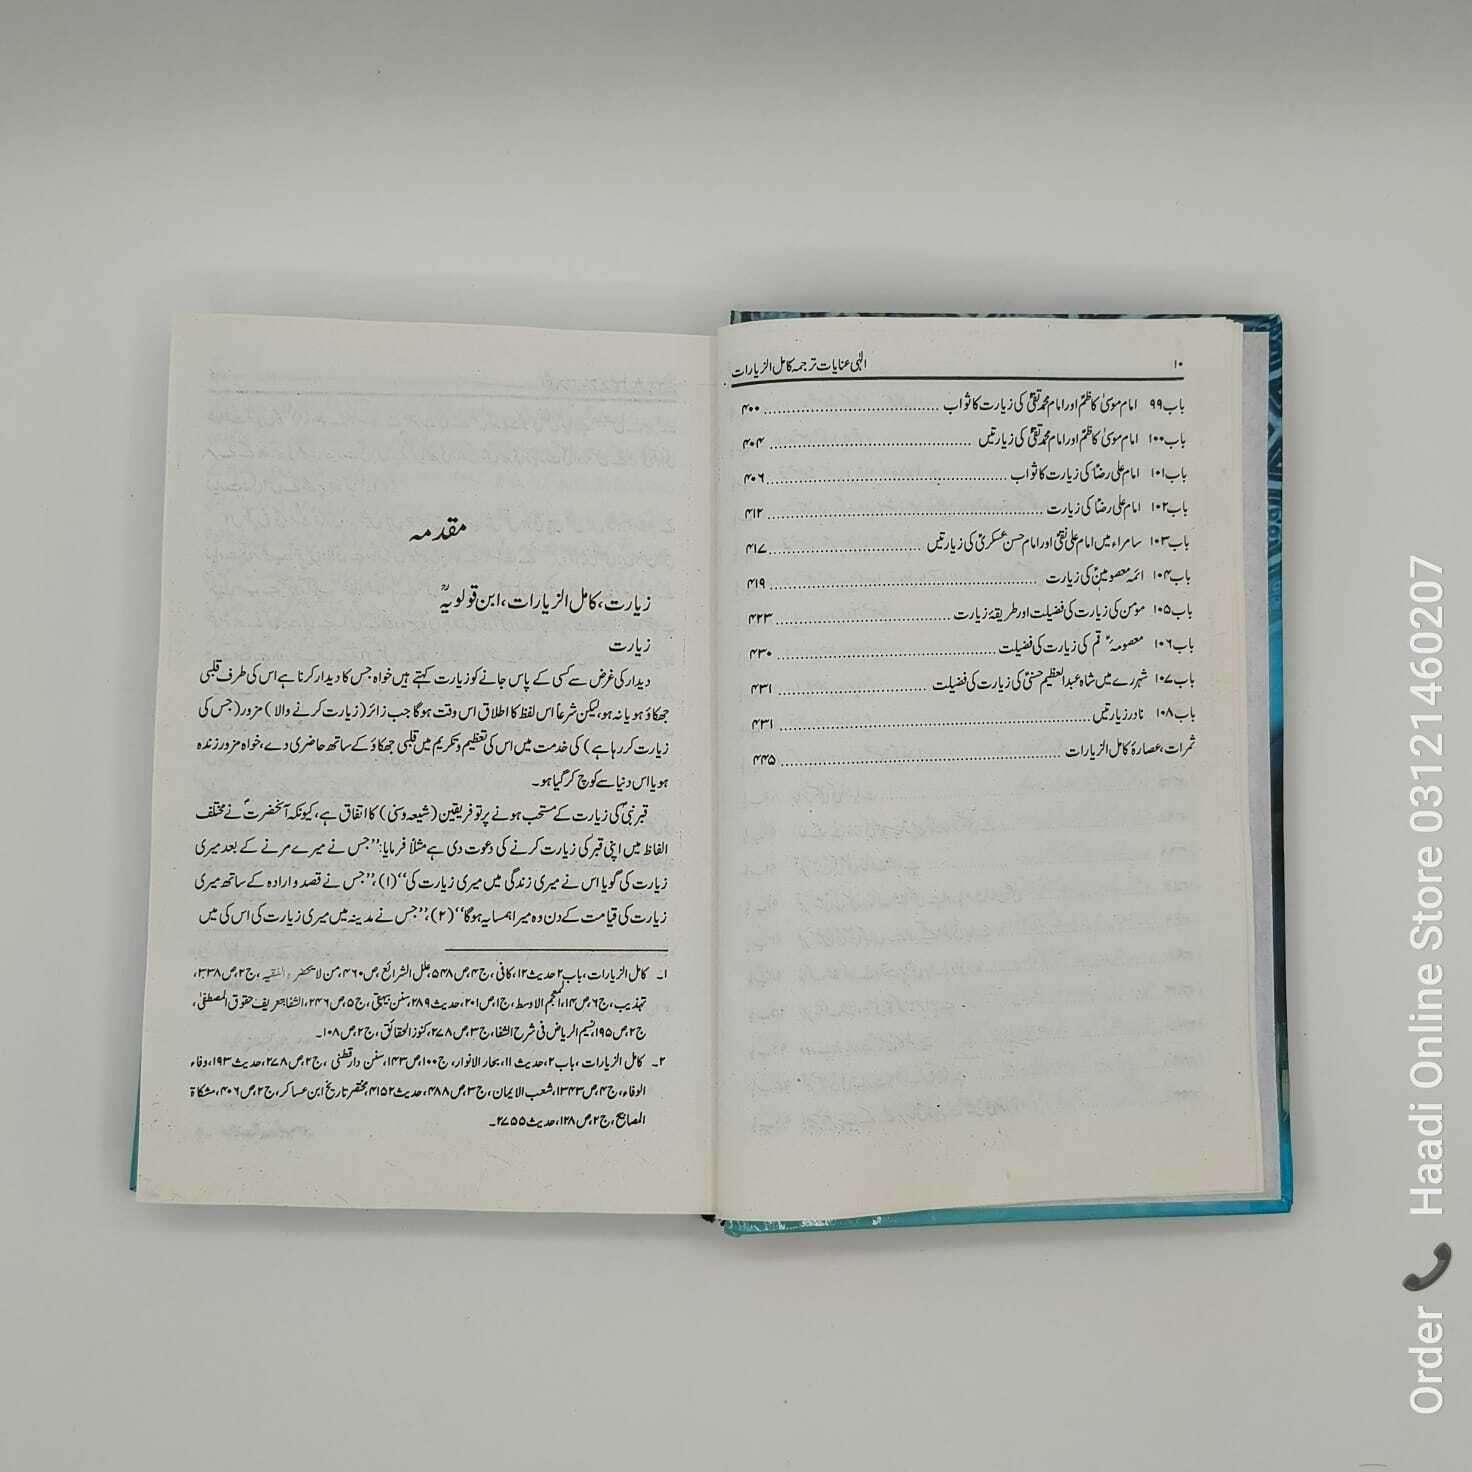 ۱۰ الہی عنایات ترجمہ کامل الزیارات
باب ۹۹ امام موسیٰ کاظمؑ اور امام محمد تقیؑ کی زیارت کا ثواب ........ ۴۰۰
باب ۱۰۰ امام موسیٰ کاظمؑ اور امام محمد تقیؑ کی زیارتیں ........ ۴۰۴
باب ۱۰۱ امام علی رضاؑ کی زیارت کا ثواب ........ ۴۰۶
باب ۱۰۲ امام علی رضاؑ کی زیارت ........ ۴۱۲
باب ۱۰۳ سامراء میں امام علی نقیؑ اور امام حسن عسکریؑ کی زیارتیں ........ ۴۱۷
باب ۱۰۴ ائمہ معصومینؑ کی زیارت ........ ۴۱۹
باب ۱۰۵ مومن کی زیارت کی فضیلت اور طریقۂ زیارت ........ ۴۲۳
باب ۱۰۶ معصومہؑ قم کی زیارت کی فضیلت ........ ۴۳۰
باب ۱۰۷ شہر رے میں شاہ عبدالعظیم حسنیؑ کی زیارت کی فضیلت ........ ۴۳۱
باب ۱۰۸ نادر زیارتیں ........ ۴۳۱
ثمرات، عصارۂ کامل الزیارات ........ ۴۴۵
مقدمہ
زیارت، کامل الزیارات، ابن قولویہؒ
زیارت
دیدار کی غرض سے کسی کے پاس جانے کو زیارت کہتے ہیں خواہ جس کا دیدار کرنا ہے اس کی طرف قلبی
جھکاؤ ہو یا نہ ہو، لیکن شرعاً اس لفظ کا اطلاق اس وقت ہوگا جب زائر (زیارت کرنے والا) مزور (جس کی
زیارت کر رہا ہے) کی خدمت میں اس کی تعظیم و تکریم میں قلبی جھکاؤ کے ساتھ حاضری دے، خواہ مزور زندہ
ہو یا اس دنیا سے کوچ کر گیا ہو۔
قبر نبیؐ کی زیارت کے مستحب ہونے پر تو فریقین (شیعہ و سنی) کا اتفاق ہے، کیونکہ آنحضرتؐ نے مختلف
الفاظ میں اپنی قبر کی زیارت کرنے کی دعوت دی ہے مثلاً فرمایا: ”جس نے میرے مرنے کے بعد میری
زیارت کی گویا اس نے میری زندگی میں میری زیارت کی“ (۱)، ”جس نے قصد و ارادہ کے ساتھ میری
زیارت کی قیامت کے دن وہ میرا ہمسایہ ہوگا“ (۲)، ”جس نے مدینہ میں میری زیارت کی اس کی میں
۱۔ کامل الزیارات، باب ۲ حدیث ۱۲، کافی، ج ۴، ص ۵۴۸، علل الشرائع ص ۴۶۰، من لا یحضرہ الفقیہ، ج ۲، ص ۳۳۸،
تہذیب، ج ۶، ص ۱۴، المعجم الاوسط، ج ۱، ص ۲۰۱، حدیث ۲۸۹، سنن بیہقی، ج ۵، ص ۲۴۶، الشفا بتعریف حقوق المصطفیٰ،
ج ۲، ص ۱۹۵، نسیم الریاض فی شرح الشفا، ج ۳، ص ۲۷۸، کنوز الحقائق، ج ۲، ص ۱۰۸۔
۲۔ کامل الزیارات، باب ۲، حدیث ۱۱، بحار الانوار، ج ۱۰۰، ص ۱۴۳، سنن دار قطنی، ج ۲، ص ۲۷۸، حدیث ۱۹۳، وفاء
الوفاء، ج ۴، ص ۱۳۴۳، شعب الایمان، ج ۳، ص ۴۸۸، حدیث ۴۱۵۲، مختصر تاریخ ابن عساکر، ج ۲، ص ۴۰۶، مشکاۃ
المصابیح، ج ۲، ص ۱۲۸، حدیث ۲۷۵۵۔
Order 📞 Haadi Online Store 03121460207